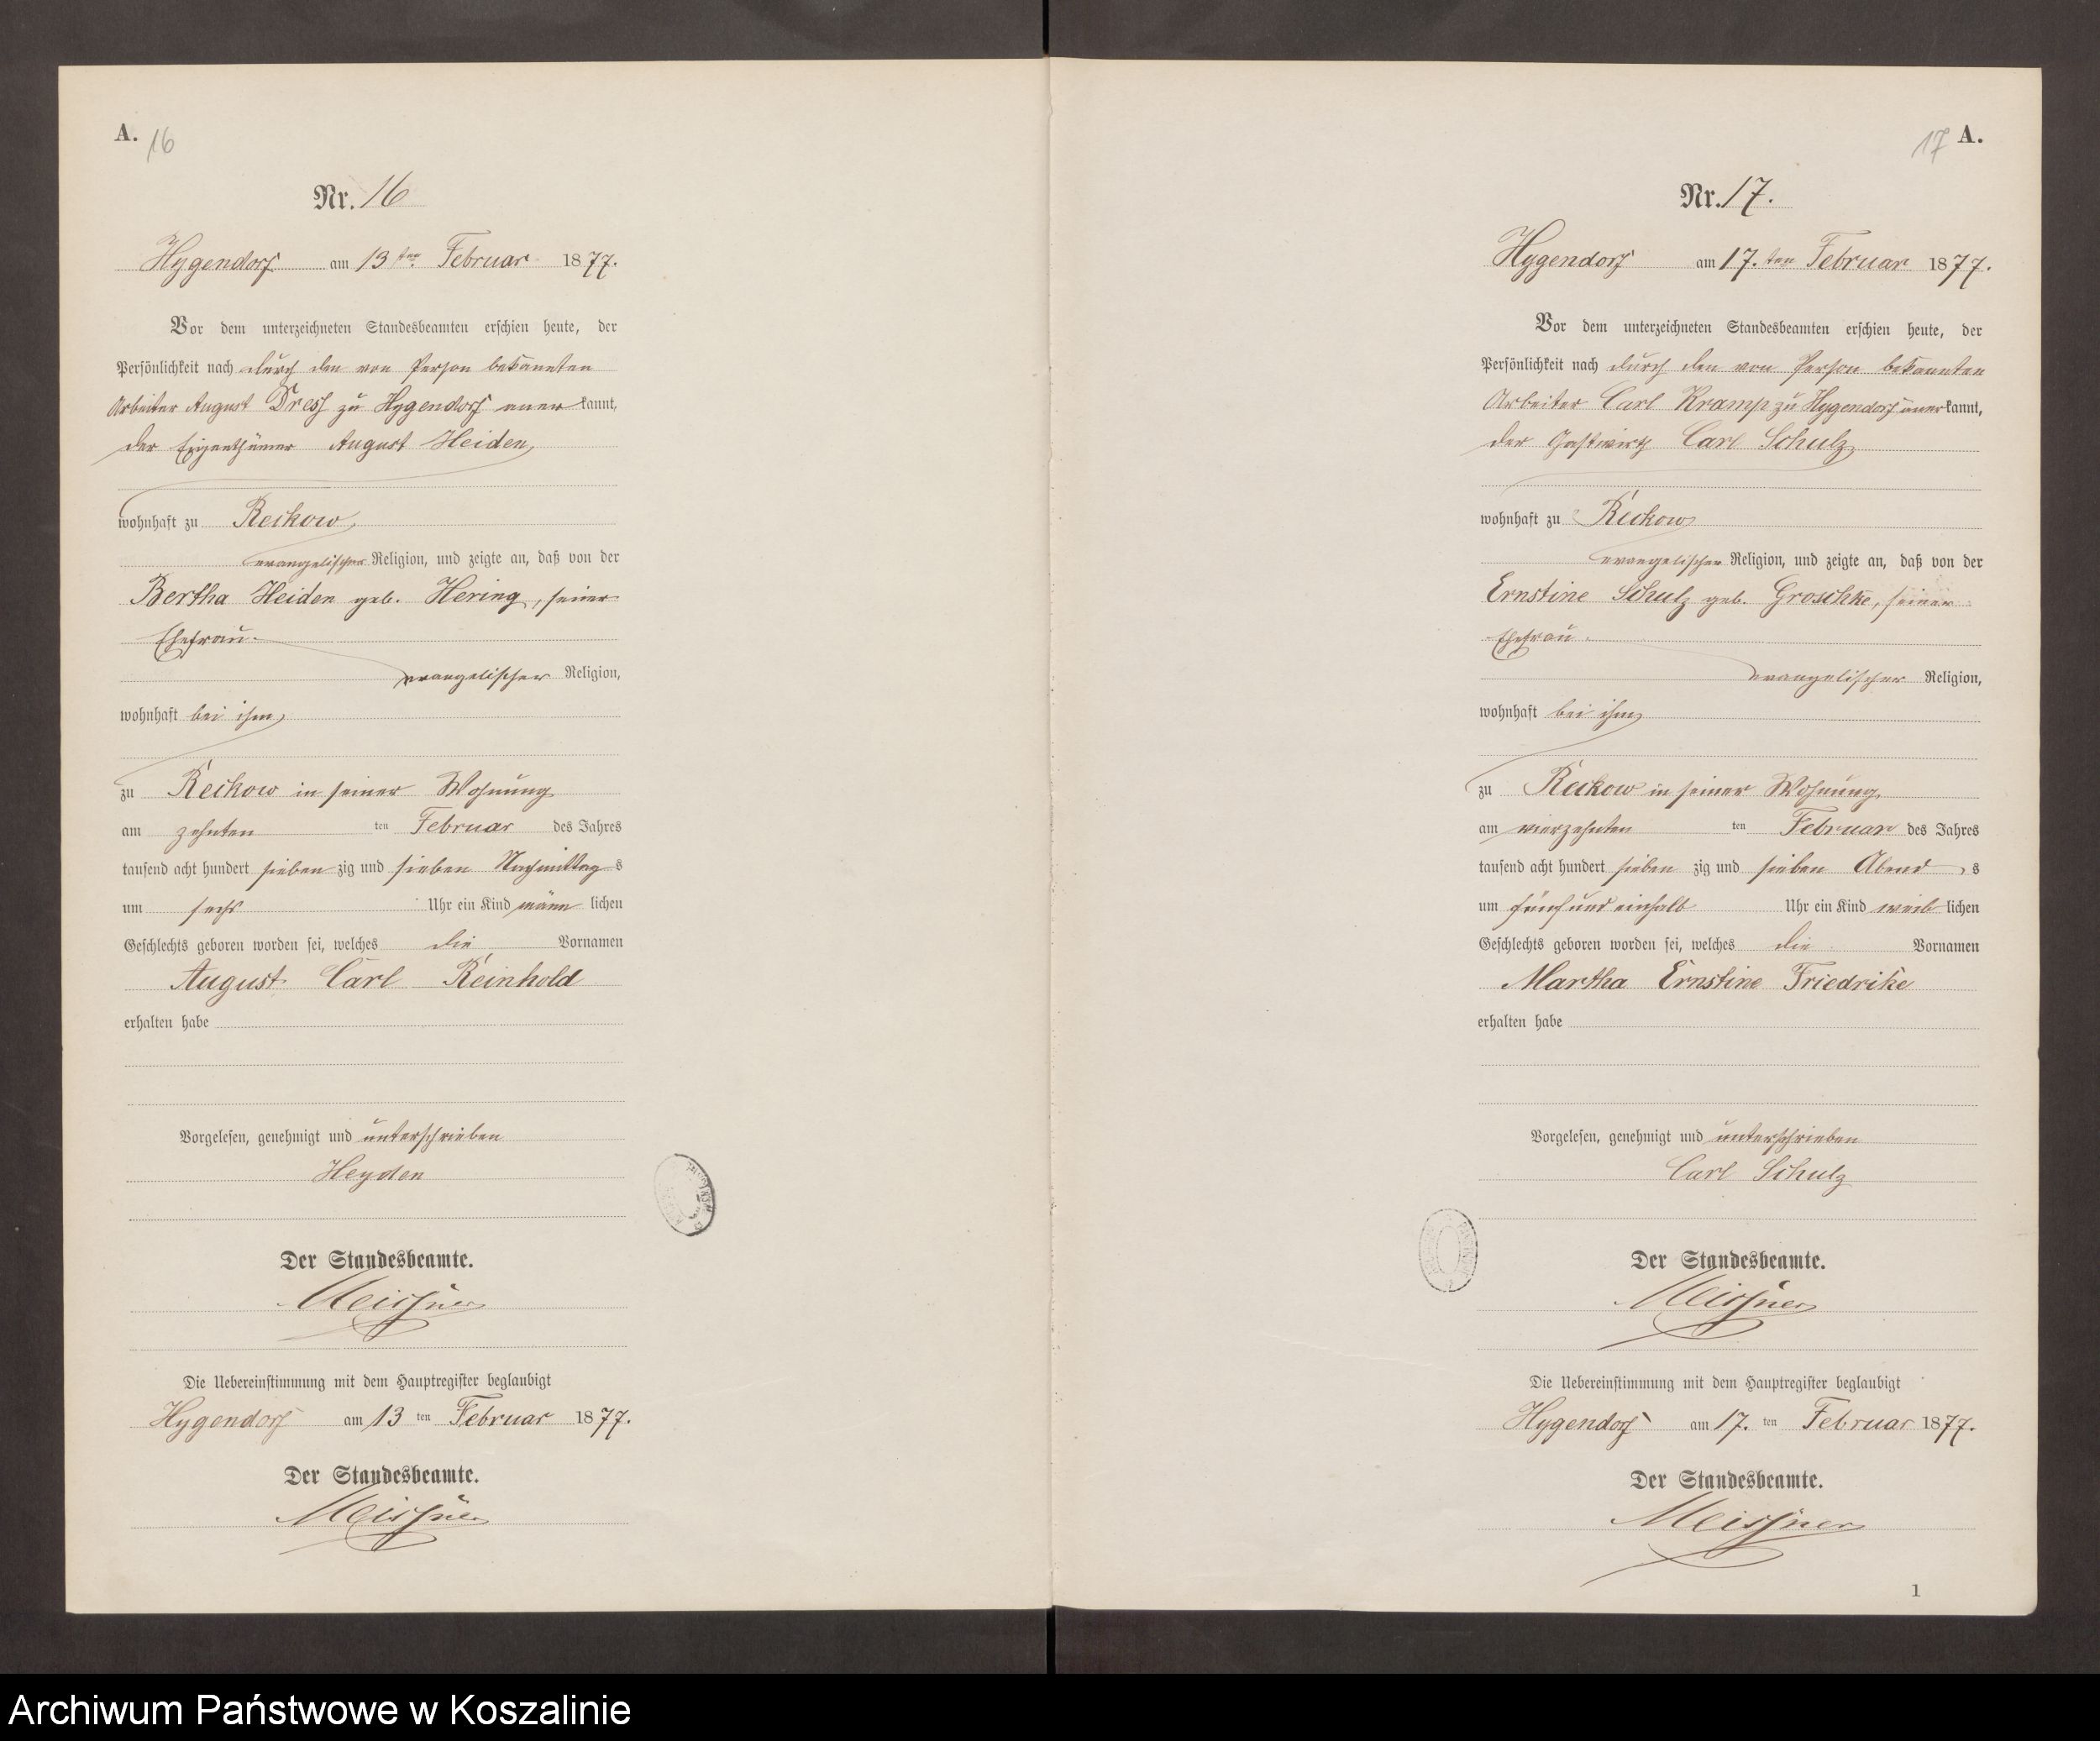 A. 16
Nr. 16
Hygendorf am 13 ten Februar 1877.
Vor dem unterzeichneten Standesbeamten erschien heute, der
Persönlichkeit nach durch den von Person bekannten
Arbeiter August Dress zu Hygendorf anerkannt,
der Eigenthümer August Heiden,
wohnhaft zu Reckow,
evangelischer Religion, und zeigte an, daß von der
Bertha Heiden geb. Hering, seiner
Ehefrau.
evangelischer Religion,
wohnhaft bei ihm,
zu Reckow in seiner Wohnung
am zehnten ten Februar des Jahres
tausend acht hundert siebenzig und sieben Nachmittags
um sechs Uhr ein Kind männlichen
Geschlechts geboren worden sei, welches die Vornamen
August Carl Reinhold
erhalten habe
Vorgelesen, genehmigt und unterschrieben
Heyden
Der Standesbeamte.
Meissner
Die Uebereinstimmung mit dem Hauptregister beglaubigt
Hygendorf am 13 ten Februar 1877.
Der Standesbeamte.
Meissner
17 A.
Nr. 17.
Hygendorf am 17. ten Februar 1877.
Vor dem unterzeichneten Standesbeamten erschien heute, der
Persönlichkeit nach durch den von Person bekannten
Arbeiter Carl Kramp zu Hygendorf anerkannt,
der Gastwirth Carl Schulz
wohnhaft zu Reckow
evangelischer Religion, und zeigte an, daß von der
Ernstine Schulz geb. Groschke, seiner
Ehefrau.
evangelischer Religion,
wohnhaft bei ihm
zu Reckow in seiner Wohnung
am vierzehnten ten Februar des Jahres
tausend acht hundert siebenzig und sieben Abends
um fünf und einhalb Uhr ein Kind weiblichen
Geschlechts geboren worden sei, welches die Vornamen
Martha Ernstine Friedrike
erhalten habe
Vorgelesen, genehmigt und unterschrieben
Carl Schulz
Der Standesbeamte.
Meissner
Die Uebereinstimmung mit dem Hauptregister beglaubigt
Hygendorf am 17. ten Februar 1877.
Der Standesbeamte.
Meissner
1
Archiwum Państwowe w Koszalinie